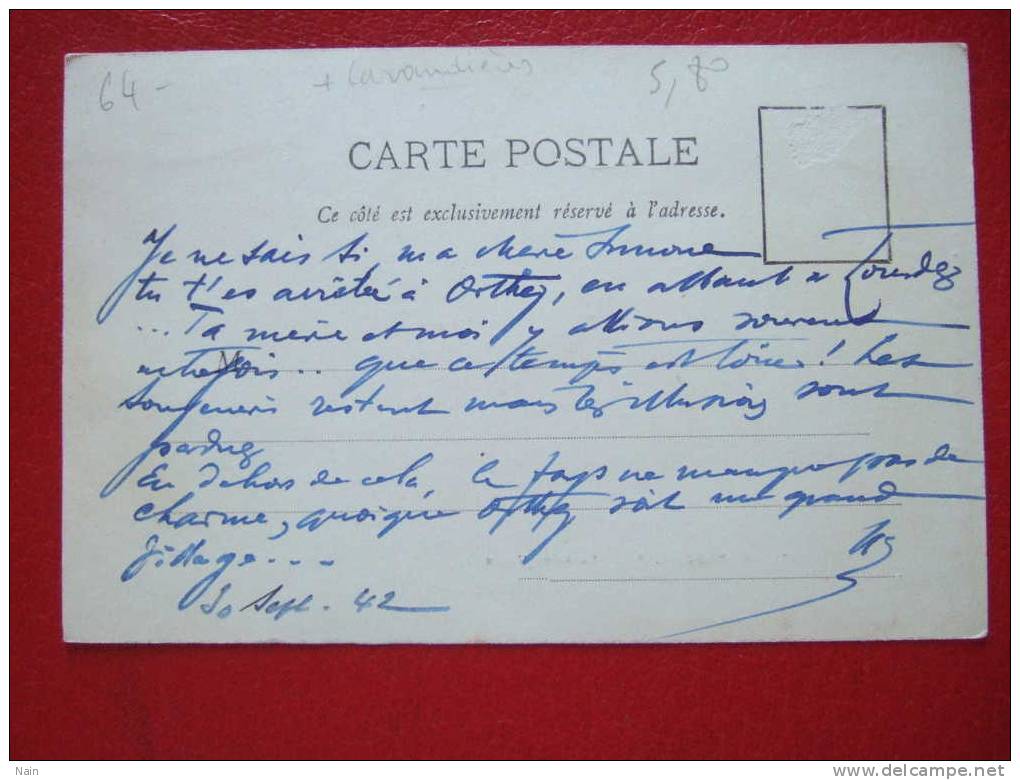 64 - + Lavandières 5,80
CARTE POSTALE
Ce côté est exclusivement réservé à l'adresse.
Je ne sais si, ma chère Simone
tu t'es arrêtée à Orthez, en allant à Lourdes
... Ta mère et moi y allions souvent
autrefois .. que ce temps est loin ! Les
souvenirs restent mais les illusions sont
perdues
En dehors de cela, le pays ne manque pas de
charme, quoique Orthez soit un grand
village ...
30 Sept. 42
M
Nain
http://www.delcampe.net